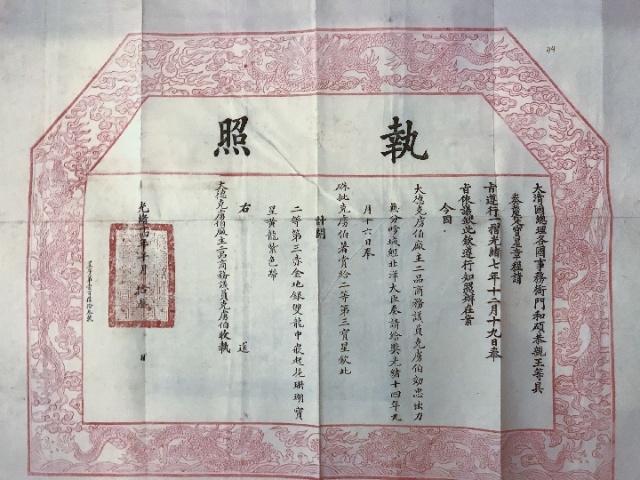 執照
大清國總理各國事務衙門和碩恭親王等具
奏嚴定寶星章程請
旨遵行一摺光緒七年十二月十九日奉
旨依議欽此欽遵行知照辦在案
今因
大德克虜伯廠主二品商務議員克虜伯効忠出力
無分畛域經北洋大臣奏請給獎光緒十四年九
月十六日奉
硃批克虜伯著賞給二等第三寶星欽此
計開
二等第三赤金地銀雙龍中嵌起花珊瑚寶
星黃龍紫色帶
右 道
大德克虜伯廠主二品商務議員克虜伯收執
光緒十四年十月 日
24